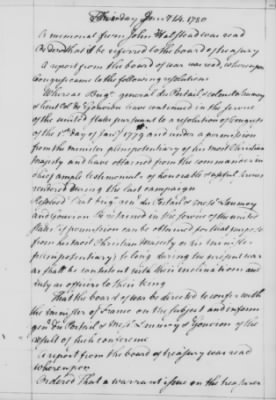 Friday Jany 14. 1780
A memorial from John Halstead was read
Ordered that it be referred to the board of treasury
A report from the board of war was read, whereupon
Congress came to the following resolutions
Whereas Brigr general du Portail & colonels Launoy
& Gouvion have continued in the service
of the united states pursuant to a resolution of Congress
of the 1st day of Jany 1779 and under a permission
from the minister plenipotentiary of his most Christian
majesty and have obtained from the commander in
chief ample testimony of honorable & useful services
rendered during the last campaign
Resolved That brigr genl du Portail & messrs Launoy
and Gouvion be retained in the service of the united
states if permission can be obtained for that purpose
from his most Christian majesty or his minister
plenipotentiary so long during the present war
as shall be consistent with their inclinations and
duty as officers to their king
That the board of war be directed to confer with
the minister of France on the subject and inform
genl du Portail & messrs Launoy & Gouvion of the
result of such conference
A report from the board of treasury was read
whereupon
Ordered That a warrant issue on the treasurer